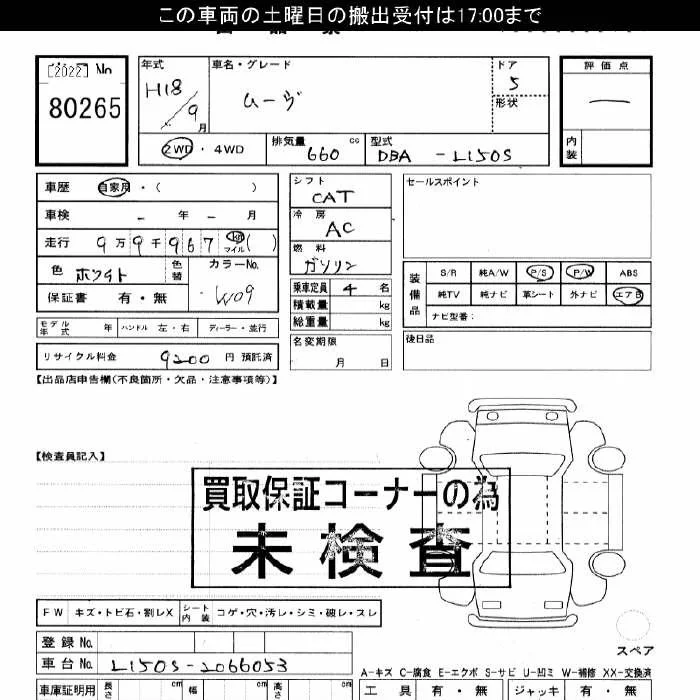 この車両の土曜日の搬出受付は17:00まで
[2022] No
80265
年式
H18/9月
車名・グレード
ムーヴ
ドア
5
形状
評価点
—
内装
2WD ・ 4WD
排気量 660 cc
型式 DBA - L150S
車歴 自家用 ・( )
車検 - 年 - 月
走行 9万9千967 km マイル ( )
色 ホワイト 色替
カラーNo. W09
保証書 有・無
モデル年式 年 ハンドル 左・右 ディーラー・並行
リサイクル料金 9200 円 預託済
シフト
CAT
冷房
AC
燃料
ガソリン
乗車定員 4 名
積載量 kg
総重量 kg
名変期限
月 日
セールスポイント
装備品
S/R 純A/W P/S P/W ABS
純TV 純ナビ 革シート 外ナビ エアB
ナビ型番:
後日品
【出品店申告欄(不良箇所・欠品・注意事項等)】
【検査員記入】
買取保証コーナーの為
未検査
FW キズ・トビ石・割レX シート内装 コゲ・穴・汚レ・シミ・破レ・スレ
スペア
登録 No.
車台 No. L150S-2066053
A-キズ C-腐食 E-エクボ S-サビ U-凹ミ W-補修 XX-交換済
車庫証明用 長さ cm 幅 cm 高さ cm
工具 有・無 ジャッキ 有・無